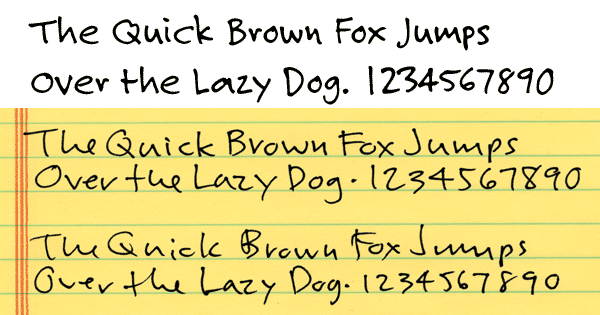 The Quick Brown Fox Jumps
over the Lazy Dog. 1234567890
The Quick Brown Fox Jumps
Over the Lazy Dog. 1234567890
The Quick Brown Fox Jumps
Over the Lazy Dog. 1234567890